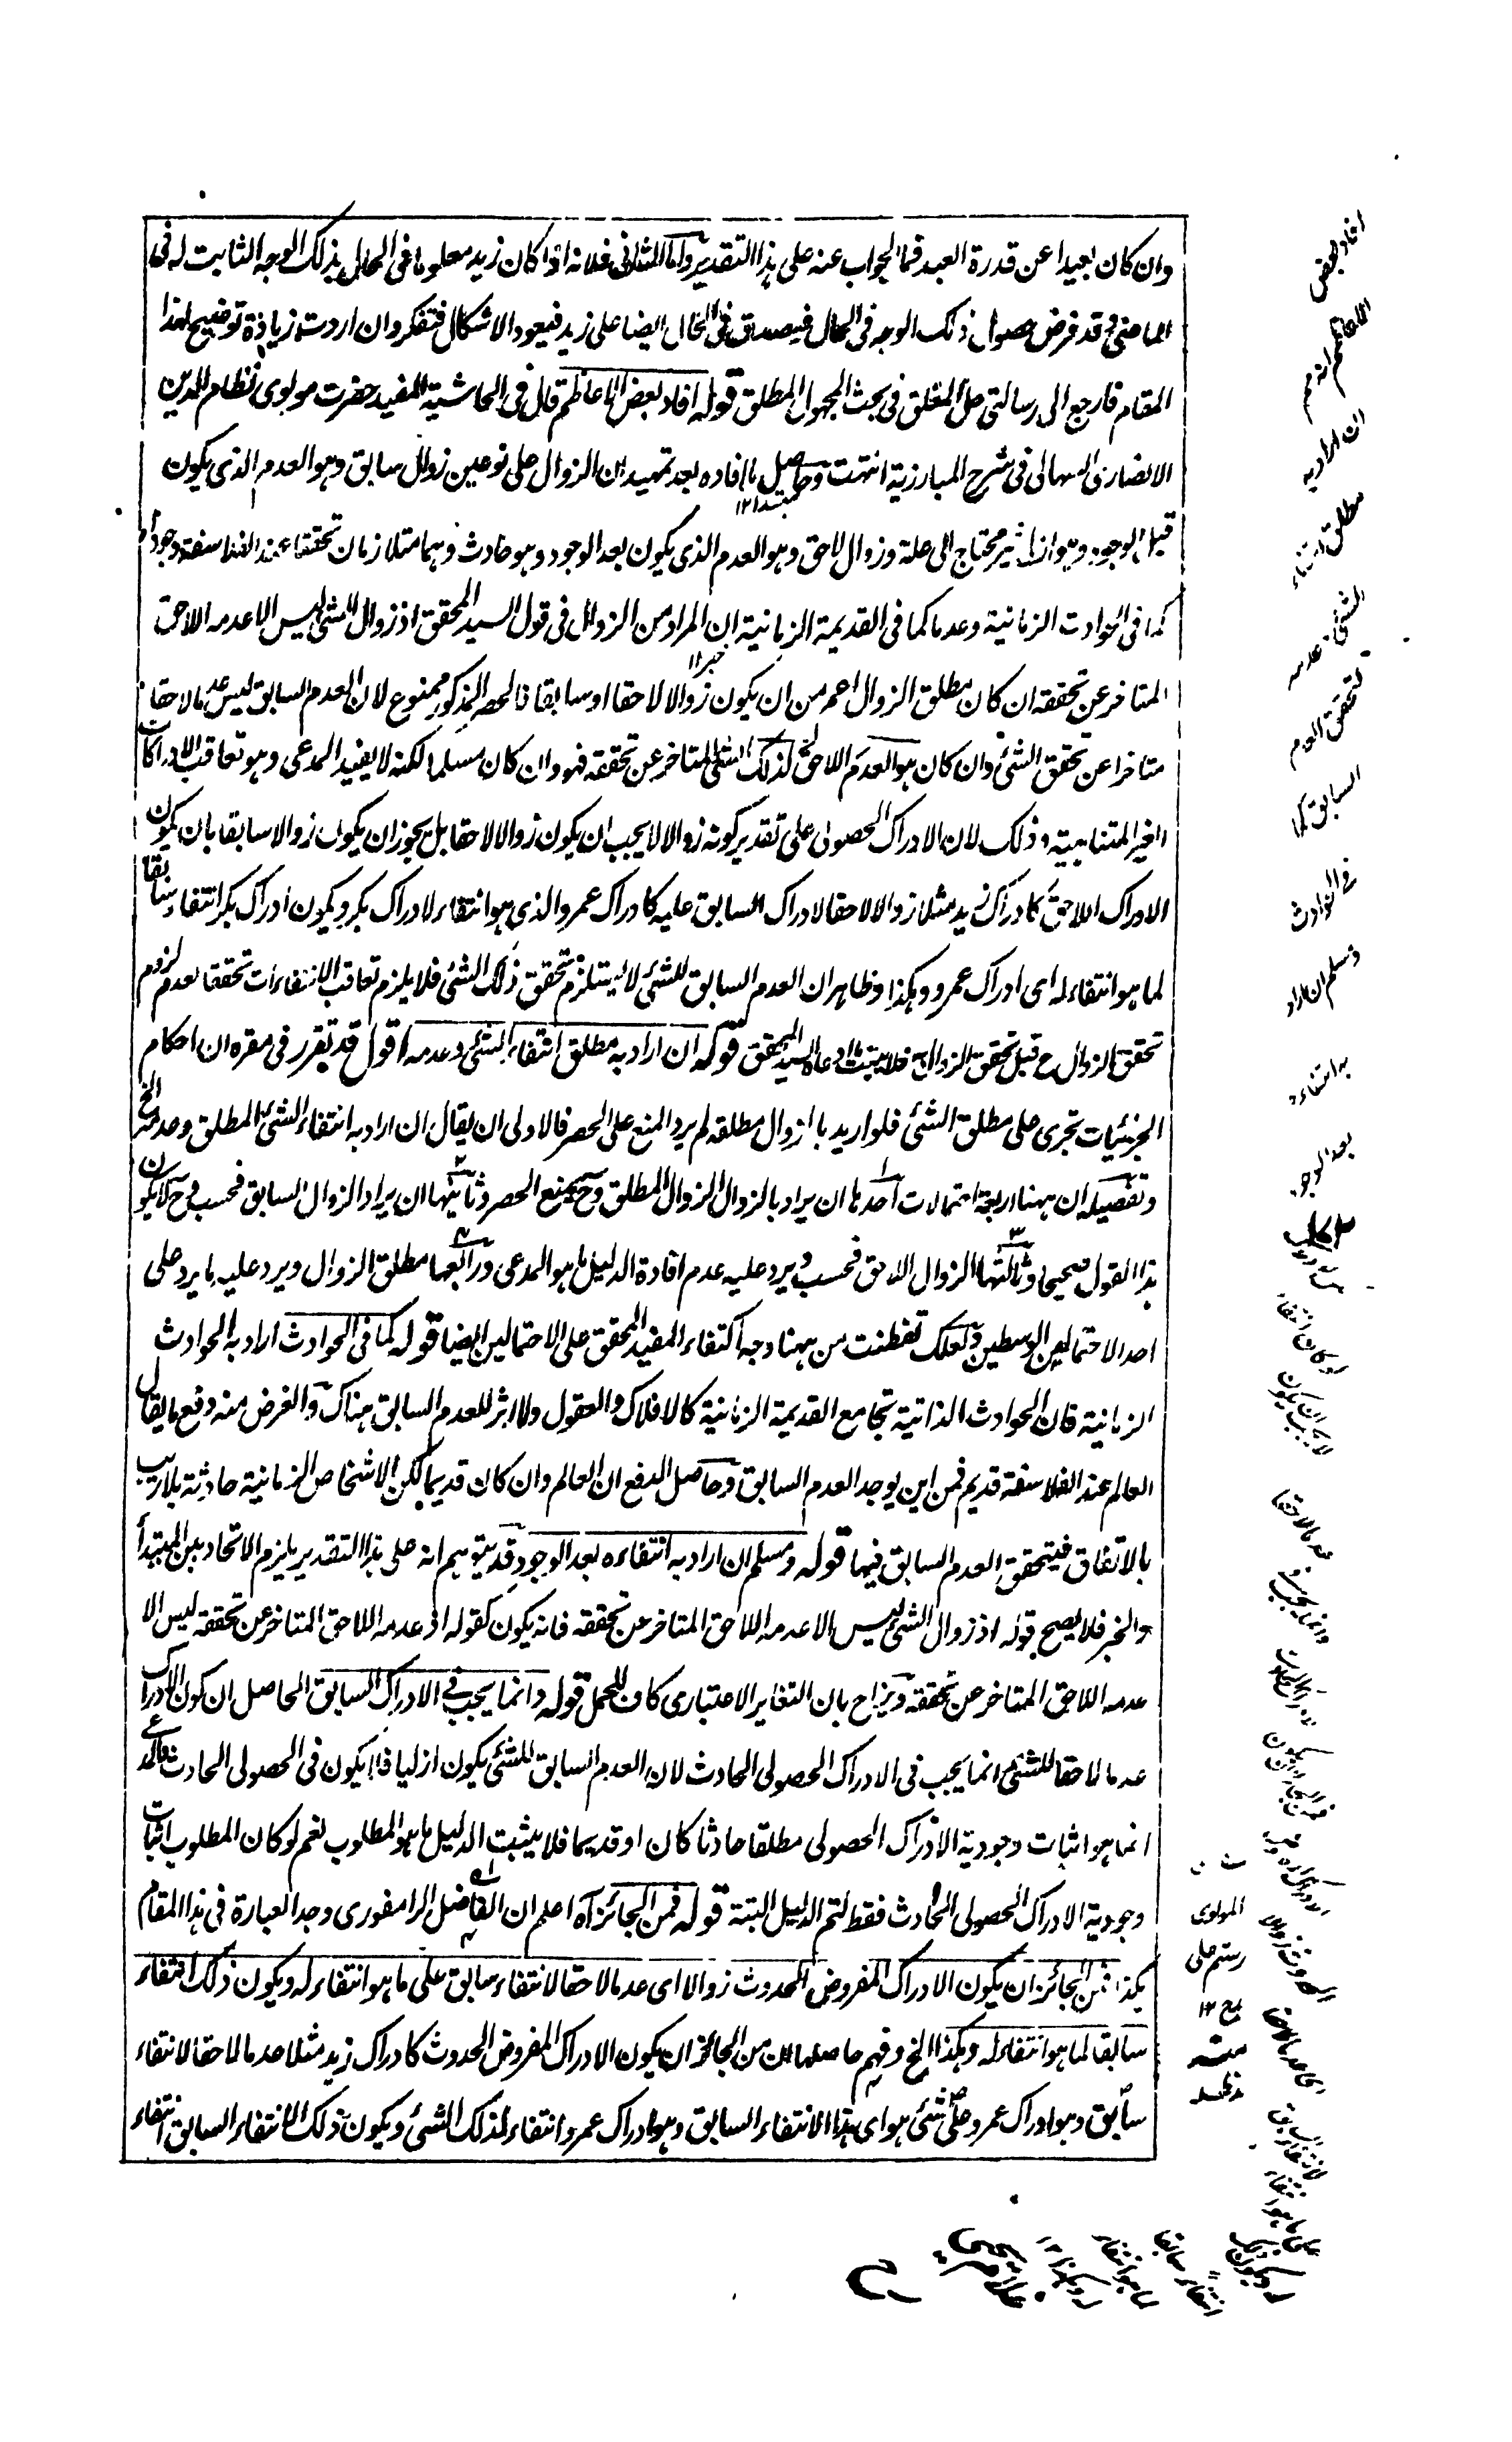 وان كان بعيدا عن قدرة العبد فما الجواب عنه على هذا التقدير واما الثانى فلانه اذا كان زيد معلوما فى الحال بذلك الوجه الثابت له فى
الماضى وقد فرض حصول ذلك الوجه فى الحال فيصدق فى الحال ايضا على زيد فيعود الاشكال فتفكر وان اردت زيادة توضيح لهذا
المقام فارجع الى رسالتى حل المغلق فى بحث المجهول المطلق قوله افاد بعض الاعاظم قال فى الحاشية المفيد حضرت مولوى نظام الدين
الانصارى السهالى فى شرح المبارزية انتهت وحاصل ما افاده بعد تمهيد ان الزوال على نوعين زوال سابق وهو العدم الذى يكون
قبل الوجود وهو ازلى غير محتاج الى علة وزوال لاحق وهو العدم الذى يكون بعد الوجود وهو حادث وهما متلازمان تحققا عند الفلاسفة وجودا
كما فى الحوادث الزمانية وعدما كما فى القديمة الزمانية ان المراد من الزوال فى قول السيد المحقق اذ زوال الشئ ليس الا عدمه اللاحق
المتاخر عن تحققه ان كان مطلق الزوال اعم من ان يكون زوالا لاحقا او سابقا فالحصر المذكور ممنوع لان العدم السابق ليس عدما لاحقا
متاخرا عن تحقق الشئ وان كان هو العدم اللاحق لذلك الشئ المتاخر عن تحققه فهو وان كان مسلما لكنه لا يفيد المدعى وهو تعاقب الادراكات
الغير المتناهية وذلك لان الادراك الحصولى على تقدير كونه زوالا لا يجب ان يكون زوالا لاحقا بل يجوز ان يكون زوالا سابقا بان يكون
الادراك اللاحق كادراك زيد مثلا زوالا لاحقا لادراك السابق عليه كادراك عمرو الذى هو انتفاء لادراك بكر ويكون ادراك بكر انتفاء سابقا
لما هو انتفاء له اى ادراك عمرو وهكذا وظاهر ان العدم السابق للشئ لا يستلزم تحقق ذلك الشئ فلا يلزم تعاقب الانتفاءات تحققا لعدم لزوم
تحقق الزوال ح قبل تحقق الزوال فلا يثبت ما ادعاه السيد المحقق قوله ان اراد به مطلق انتفاء الشئ وعدمه اقول قد تقرر فى مقره ان احكام
الجزئيات تجرى على مطلق الشئ فلو اريد بالزوال مطلقه لم يرد المنع على الحصر فالاولى ان يقال ان اراد به انتفاء الشئ المطلق وعدمه الخ
وتفصيله ان ههنا اربعة احتمالات احدها ان يراد بالزوال الزوال المطلق وح يمنع الحصر وثانيتها ان يراد الزوال السابق فحسب وح لا يكون
هذا القول صحيحا وثالثها الزوال اللاحق فحسب ويرد عليه عدم افادة الدليل ما هو المدعى ورابعها مطلق الزوال ويرد عليه ما يرد على
احد الاحتمالين الوسطين ولعلك تفطنت من ههنا وجه اكتفاء المفيد المحقق على الاحتمالين ايضا قوله كما فى الحوادث اراد به الحوادث
الزمانية فان الحوادث الذاتية تجامع القديمة الزمانية كالافلاك والعقول ولا اثر للعدم السابق هناك والغرض منه دفع ما يقال
العالم عند الفلاسفة قديم فمن اين يوجد العدم السابق وحاصل الدفع ان العالم وان كان قديما لكن الاشخاص الزمانية حادثة بلا ريب
بالاتفاق فيتحقق العدم السابق فيها قوله ومسلم ان اراد به انتفاءه بعد الوجود قد يتوهم انه على هذا التقدير يلزم الاتحاد بين المبتدأ
والخبر فلا يصح قوله اذ زوال الشئ ليس الا عدمه اللاحق المتاخر عن تحققه فانه يكون كقوله اذ عدمه اللاحق المتاخر عن تحققه ليس الا
عدمه اللاحق المتاخر عن تحققه ويزاح بان التغاير الاعتبارى كاف للحمل قوله وانما يجب فى الادراك السابق الحاصل ان كون الادراك
عدما لاحقا للشئ انما يجب فى الادراك الحصولى الحادث لان العدم السابق للشئ يكون ازليا فلا يكون فى الحصولى الحادث
انما هو اثبات وجودية الادراك الحصولى مطلقا حادثا كان او قديما فلا يثبت الدليل ما هو المطلوب نعم لو كان المطلوب اثبات
وجودية الادراك الحصولى الحادث فقط لتم الدليل البتة قوله فمن الجائز آه اعلم ان الفاضل الرامفورى وجد العبارة فى هذا المقام
هكذا فمن الجائز ان يكون الادراك المفروض الحدوث زوالا اى عدما لاحقا لانتفاء سابق على ما هو انتفاء له ويكون ذلك انتفاء
سابقا لما هو انتفاء له وهكذا الخ وفهم حاصلها ان من الجائز ان يكون الادراك المفروض الحدوث كادراك زيد مثلا عدما لاحقا لانتفاء
سابق وهو ادراك عمرو على شئ هو اى هذا الانتفاء السابق وهو ادراك عمرو انتفاء لذلك الشئ ويكون ذلك الانتفاء السابق انتفاء
افاد بعض
الاعاظم انه
ان اراد به
مطلق انتفاء
الشئ وعدمه
تحقق العدم
السابق كما
فى الحوادث
ومسلم ان اراد
به انتفاءه
بعد الوجود
المولوى
رستم على